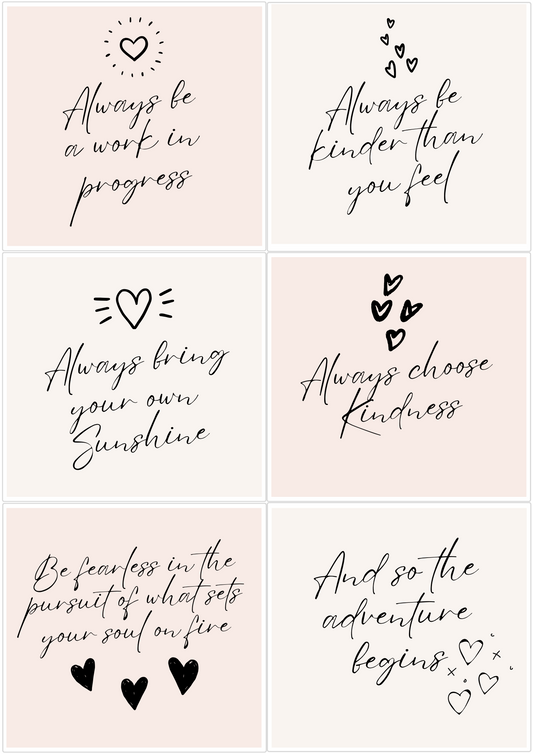 Always be
a work in
progress
Always be
kinder than
you feel
Always bring
your own
Sunshine
Always choose
Kindness
Be fearless in the
pursuit of what sets
your soul on fire
And so the
adventure
begins